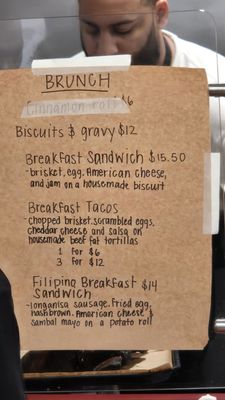 BRUNCH
Cinnamon roll $6
Biscuits & gravy $12
Breakfast Sandwich $15.50
- brisket, egg, American cheese,
and jam on a housemade biscuit
Breakfast Tacos
- chopped brisket, scrambled eggs,
cheddar cheese and salsa on
housemade beef fat tortillas
1 for $6
3 for $12
Filipino Breakfast $14
Sandwich
- longanisa sausage, fried egg,
hashbrown, American cheese &
sambal mayo on a potato roll